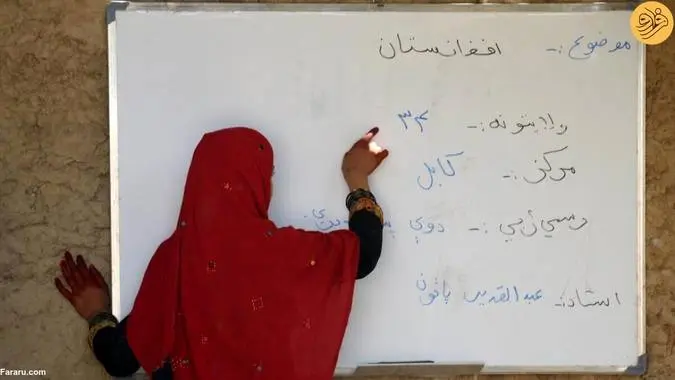 موضوع :- افغانستان
ولایتونه :- ۳۴
مرکز :- کابل
رسمي ژبې :- دوې
استاد :- عبدالقدیر
فرارو
Fararu.com